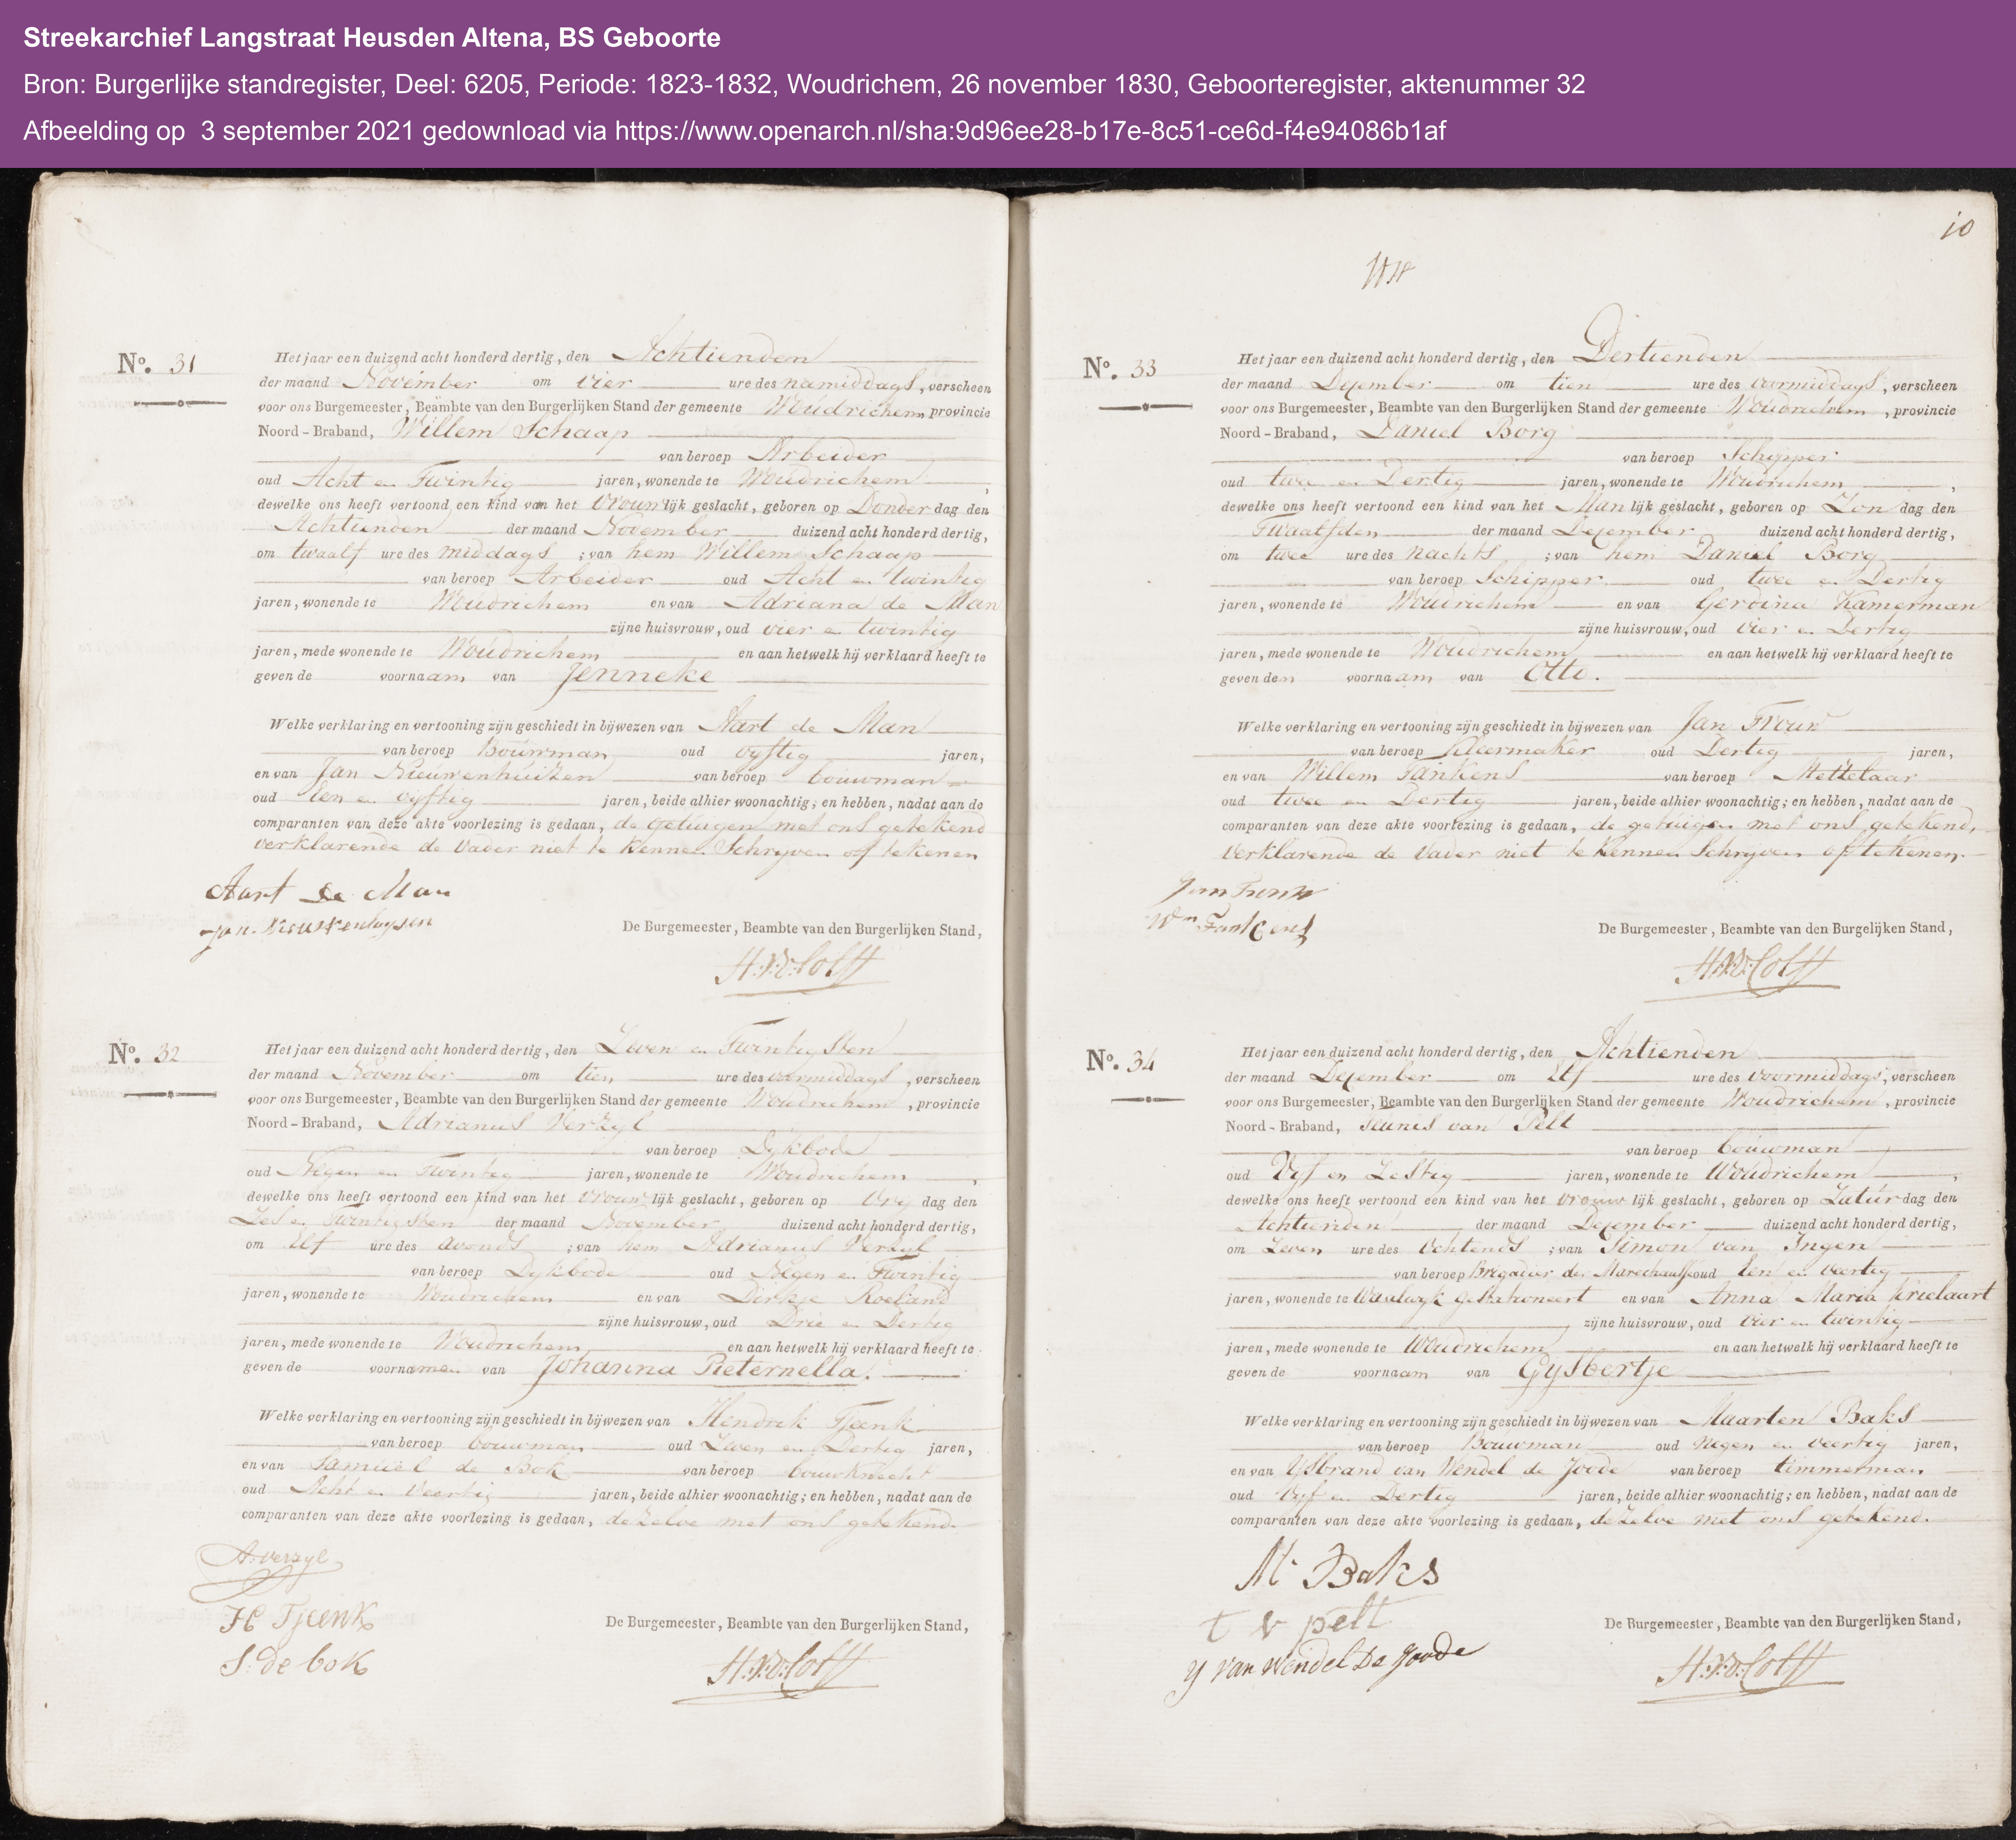 Streekarchief Langstraat Heusden Altena, BS Geboorte
Bron: Burgerlijke standregister, Deel: 6205, Periode: 1823-1832, Woudrichem, 26 november 1830, Geboorteregister, aktenummer 32
Afbeelding op 3 september 2021 gedownload via https://www.openarch.nl/sha:9d96ee28-b17e-8c51-ce6d-f4e94086b1af
No. 31
Het jaar een duizend acht honderd dertig, den Achtienden
der maand November om vier ure des namiddags, verscheen
voor ons Burgemeester, Beämbte van den Burgerlijken Stand der gemeente Woudrichem, provincie
Noord-Braband, Willem Schaap
van beroep Arbeider
oud Acht en Twintig jaren, wonende te Woudrichem,
dewelke ons heeft vertoond een kind van het vrouwlijk geslacht, geboren op Donderdag den
Achtienden der maand November duizend acht honderd dertig,
om twaalf ure des middags ; van hem Willem Schaap
van beroep Arbeider oud Acht en twintig
jaren, wonende te Woudrichem en van Adriana de Man
zijne huisvrouw, oud vier en twintig
jaren, mede wonende te Woudrichem en aan hetwelk hij verklaard heeft te
geven de voornaam van Jenneke
Welke verklaring en vertooning zijn geschiedt in bijwezen van Aart de Man
van beroep Bouwman oud vyftig jaren,
en van Jan Nieuwenhuizen van beroep bouwman
oud Een en vyftig jaren, beide alhier woonachtig; en hebben, nadat aan de
comparanten van deze akte voorlezing is gedaan, de getuigen met ons getekend
verklarende de vader niet te kennen Schryven of tekenen
Aart de Man
Jan Nieuwenhuysen
De Burgemeester, Beambte van den Burgerlijken Stand,
No. 32
Het jaar een duizend acht honderd dertig, den Zeven en Twintigsten
der maand November om tien ure des voormiddags, verscheen
voor ons Burgemeester, Beambte van den Burgerlijken Stand der gemeente Woudrichem, provincie
Noord-Braband, Adrianus Verzyl
van beroep Dykbode
oud Negen en Twintig jaren, wonende te Woudrichem,
dewelke ons heeft vertoond een kind van het vrouwlijk geslacht, geboren op Vry dag den
Zes en Twintigsten der maand November duizend acht honderd dertig,
om Elf ure des avonds ; van hem Adrianus Verzyl
van beroep Dykbode oud Negen en Twintig
jaren, wonende te Woudrichem en van Dirkje Roeland
zijne huisvrouw, oud Drie en Dertig
jaren, mede wonende te Woudrichem en aan hetwelk hij verklaard heeft te
geven de voornamen van Johanna Pieternella.
Welke verklaring en vertooning zijn geschiedt in bijwezen van Hendrik Tjeenk
van beroep bouwman oud Zeven en Dertig jaren,
en van Samuel de Bok van beroep bouwknecht
oud Acht en Veertig jaren, beide alhier woonachtig; en hebben, nadat aan de
comparanten van deze akte voorlezing is gedaan, dezelve met ons getekend.
A: verzyl
H Tjeenk
S: de bok
De Burgemeester, Beambte van den Burgerlijken Stand,
10
No. 33
Het jaar een duizend acht honderd dertig, den Dertienden
der maand Dezember om tien ure des voormiddags, verscheen
voor ons Burgemeester, Beambte van den Burgerlijken Stand der gemeente Woudrichem, provincie
Noord-Braband, Daniel Borg
van beroep Schipper
oud twee en Dertig jaren, wonende te Woudrichem,
dewelke ons heeft vertoond een kind van het Manlijk geslacht, geboren op Zon dag den
Twaalfden der maand Dezember duizend acht honderd dertig,
om twee ure des nachts ; van hem Daniel Borg
van beroep Schipper oud twee en Dertig
jaren, wonende te Woudrichem en van Gerdina Kamerman
zijne huisvrouw, oud vier en Dertig
jaren, mede wonende te Woudrichem en aan hetwelk hij verklaard heeft te
geven den voornaam van Otto.
Welke verklaring en vertooning zijn geschiedt in bijwezen van Jan Trouw
van beroep Kleermaker oud Dertig jaren,
en van Willem van beroep Mettelaar
oud twee en Dertig jaren, beide alhier woonachtig; en hebben, nadat aan de
comparanten van deze akte voorlezing is gedaan, de getuigen met ons getekend,
verklarende de vader niet te kennen Schryven of tekenen.
De Burgemeester, Beambte van den Burgelijken Stand,
No. 34
Het jaar een duizend acht honderd dertig, den Achtienden
der maand Dezember om Elf ure des voormiddags, verscheen
voor ons Burgemeester, Beambte van den Burgerlijken Stand der gemeente Woudrichem, provincie
Noord-Braband, Teunis van Pelt
van beroep bouwman
oud Vyf en Zestig jaren, wonende te Woudrichem,
dewelke ons heeft vertoond een kind van het vrouwlijk geslacht, geboren op Zaturdag den
Achtienden der maand Dezember duizend acht honderd dertig,
om Zeven ure des Ochtends ; van Simon van Ingen
van beroep Brigadier der Marechaussé oud Een en veertig
jaren, wonende te Waalwyk gestationeert en van Anna Maria Krielaart
zijne huisvrouw, oud vier en twintig
jaren, mede wonende te Woudrichem en aan hetwelk hij verklaard heeft te
geven de voornaam van Gysbertje
Welke verklaring en vertooning zijn geschiedt in bijwezen van Maarten Baks
van beroep Bouwman oud negen en veertig jaren,
en van Ysbrand van Wendel de Joode van beroep timmerman
oud Vyf en Dertig jaren, beide alhier woonachtig; en hebben, nadat aan de
comparanten van deze akte voorlezing is gedaan, dezelve met ons getekend.
M Baks
t v pelt
y van Wendel De Joode
De Burgemeester, Beambte van den Burgerlijken Stand,